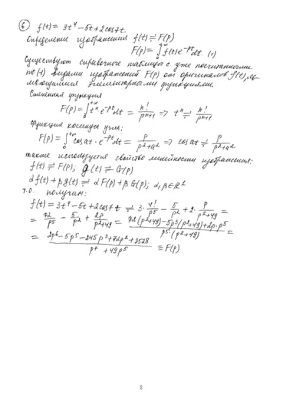 ⑥ f(t) = 3t⁴ - 5t + 2cos7t.
Определение изображения f(t) ⇌ F(p)
F(p) = ∫₀^{+∞} f(t) e^{-pt} dt. (1)
Существуют справочные таблицы с уже посчитанными
по (1) видами изображений F(p) от оригиналов f(t), яв-
ляющимися элементарными функциями.
Степенная функция
F(p) = ∫₀^{+∞} tⁿ e^{-pt} dt = n!/p^{n+1} ⇒ tⁿ ⇌ n!/p^{n+1}
Функция косинуса угла:
F(p) = ∫₀^{+∞} cosat · e^{-pt} dt = p/(p²+a²) ⇒ cosat ⇌ p/(p²+a²)
также используется свойство линейности изображения:
f(t) ⇌ F(p), g(t) ⇌ G(p)
αf(t) + βg(t) ⇌ αF(p) + βG(p); α, β ∈ R¹
т.о. получим:
f(t) = 3t⁴ - 5t + 2cos7t ⇌ 3 · 4!/p⁵ - 5/p² + 2 · p/(p²+49) =
= 72/p⁵ - 5/p² + 2p/(p²+49) = (72(p²+49) - 5p³(p²+49) + 2p · p⁵)/(p⁵(p²+49)) =
= (2p⁶ - 5p⁵ - 245p³ + 72p² + 3528)/(p⁷ + 49p⁵) = F(p)